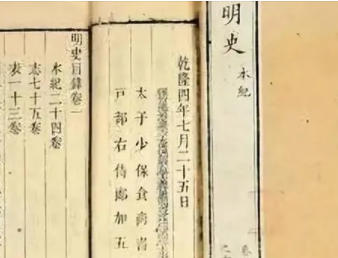 明史
本紀
乾隆四年七月二十五日
太子少保食尚書
戶部右侍郎加五
明史目錄卷一
本紀二十四卷
志七十五卷
表一十三卷